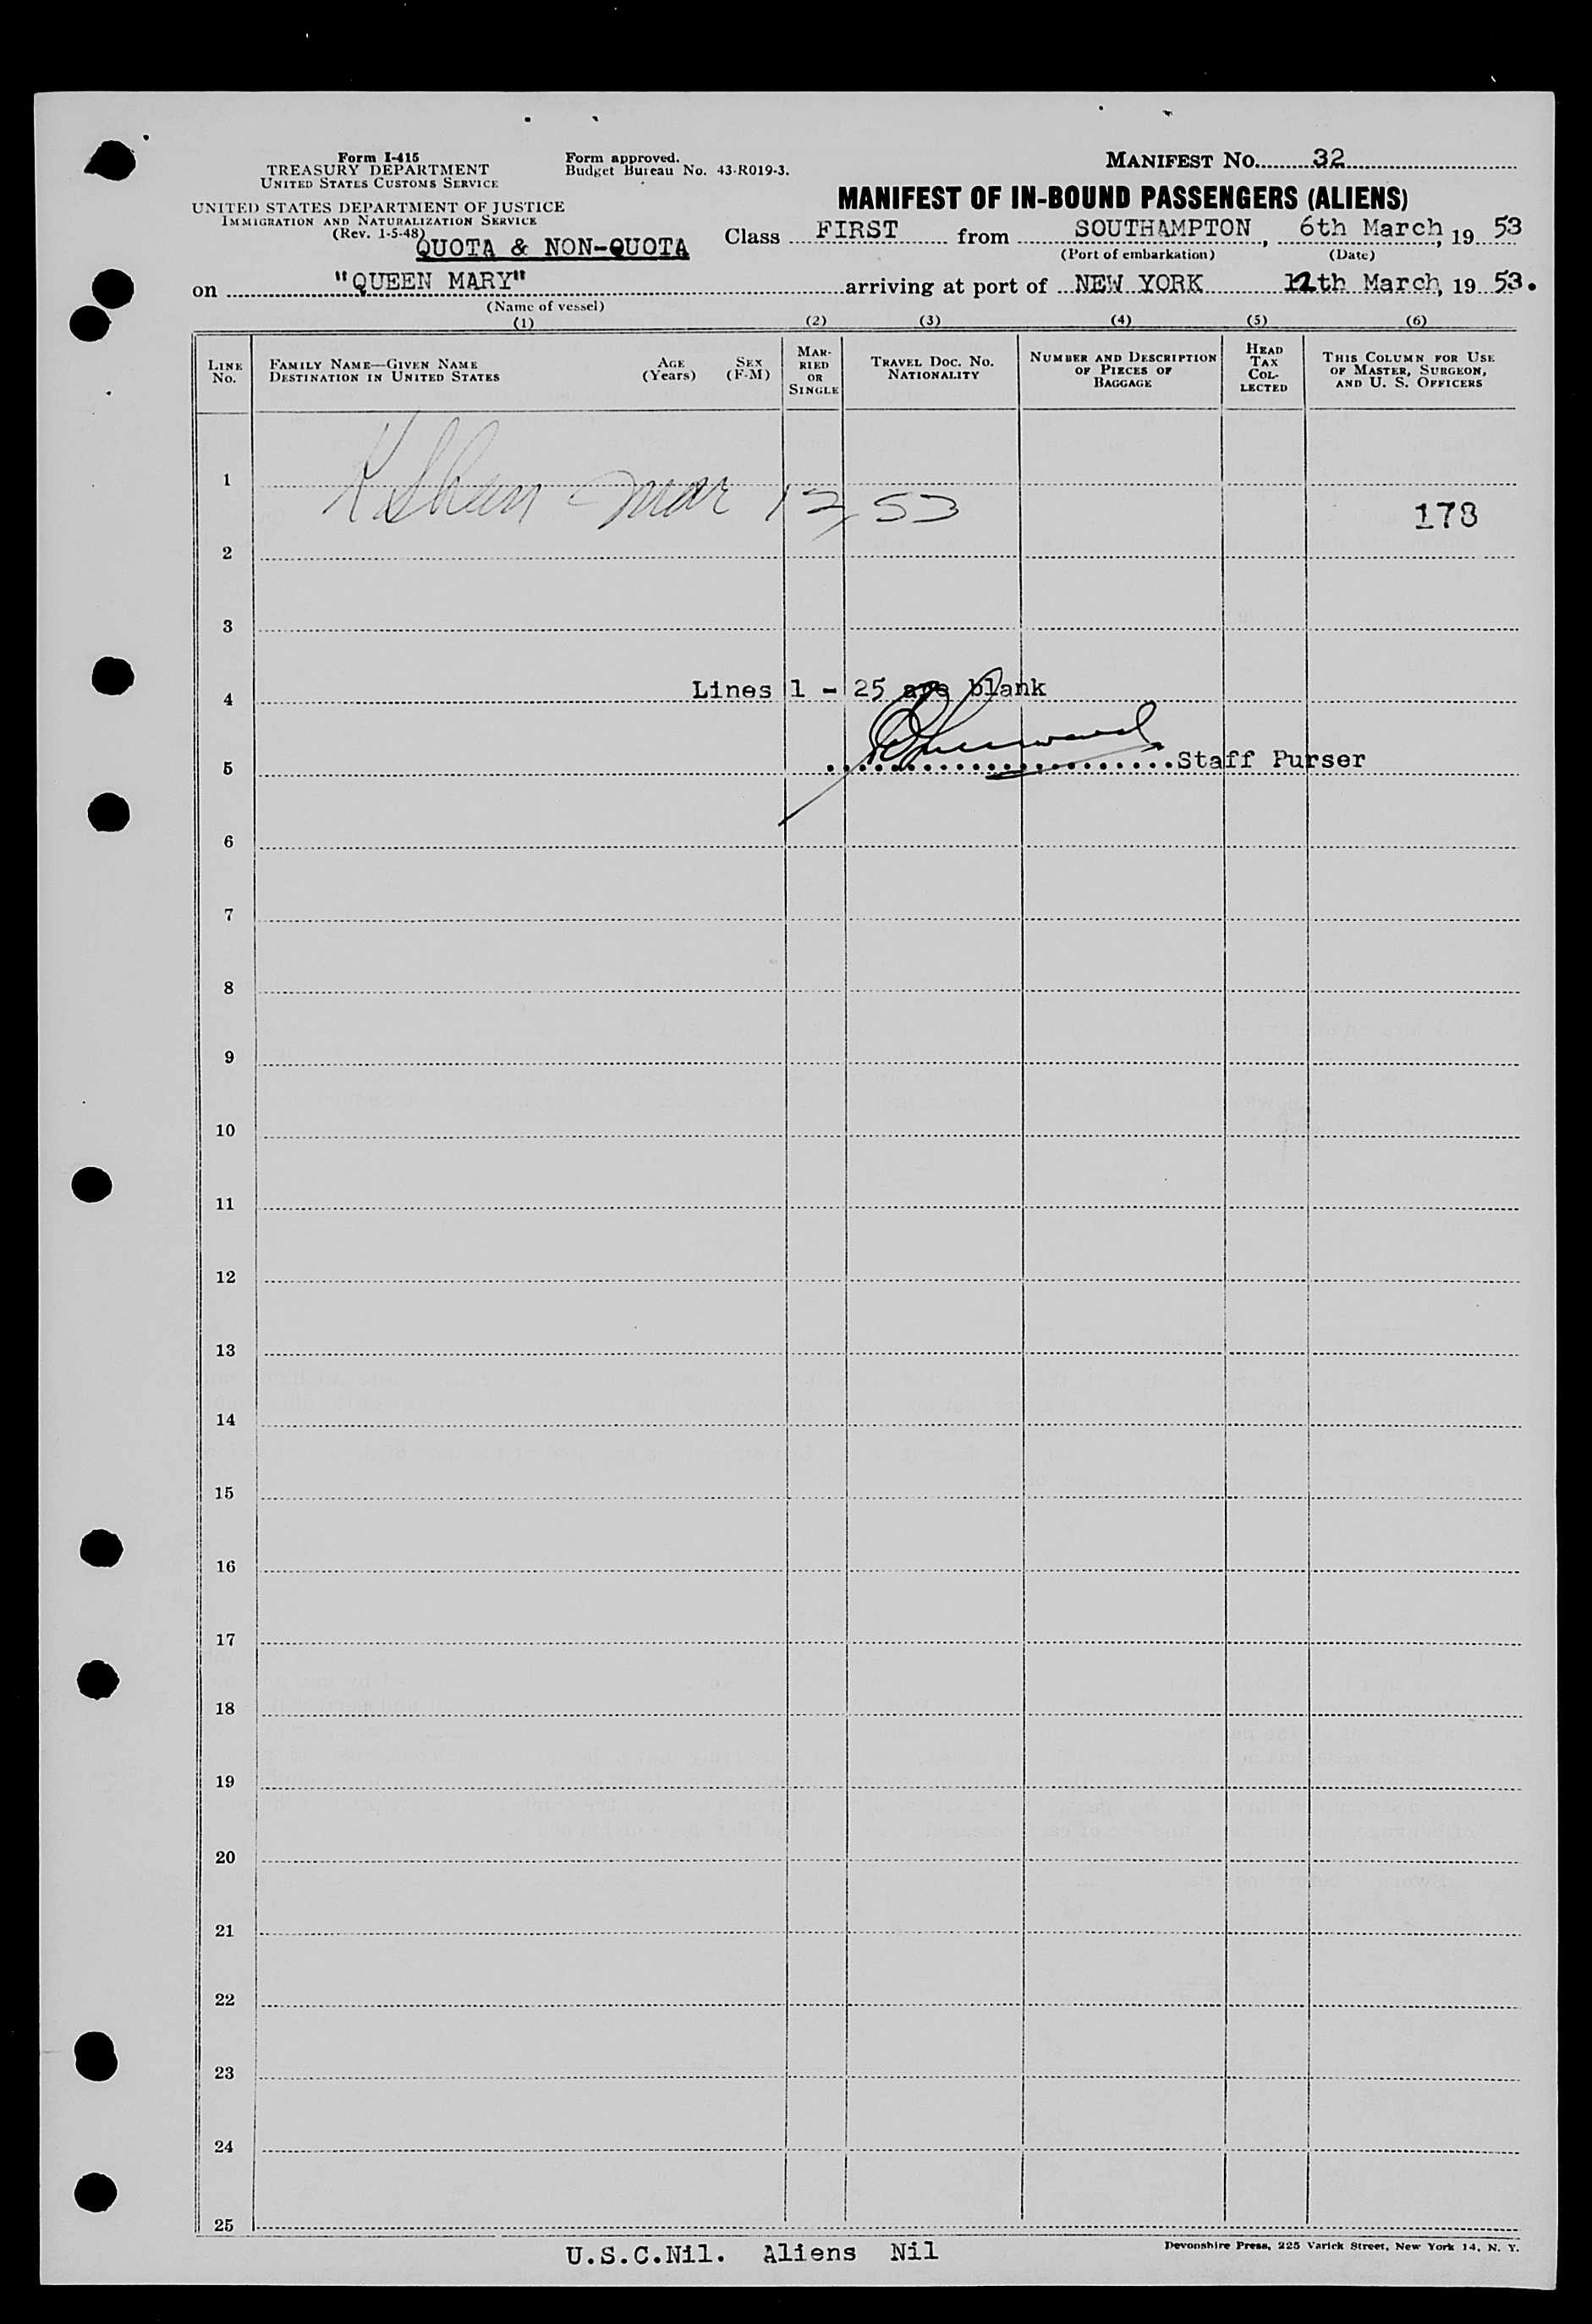 Form I-415
TREASURY DEPARTMENT
UNITED STATES CUSTOMS SERVICE
UNITED STATES DEPARTMENT OF JUSTICE
IMMIGRATION AND NATURALIZATION SERVICE
(Rev. 1-5-48)
Form approved.
Budget Bureau No. 43-R019-3.
MANIFEST NO. 32
MANIFEST OF IN-BOUND PASSENGERS (ALIENS)
QUOTA & NON-QUOTA
Class FIRST from SOUTHAMPTON, 6th March, 19 53
(Port of embarkation) (Date)
on "QUEEN MARY" arriving at port of NEW YORK 12th March, 19 53.
(Name of vessel)
(1) (2) (3) (4) (5) (6)
LINE NO.
FAMILY NAME—GIVEN NAME
DESTINATION IN UNITED STATES
AGE (Years)
SEX (F-M)
MARRIED OR SINGLE
TRAVEL DOC. NO.
NATIONALITY
NUMBER AND DESCRIPTION OF PIECES OF BAGGAGE
HEAD TAX COLLECTED
THIS COLUMN FOR USE OF MASTER, SURGEON, AND U. S. OFFICERS
1
Mar 12, 53
178
2
3
Lines 1 - 25 are blank
4
Staff Purser
5
6
7
8
9
10
11
12
13
14
15
16
17
18
19
20
21
22
23
24
25
U.S.C.Nil. Aliens Nil
Devonshire Press, 225 Varick Street, New York 14, N. Y.